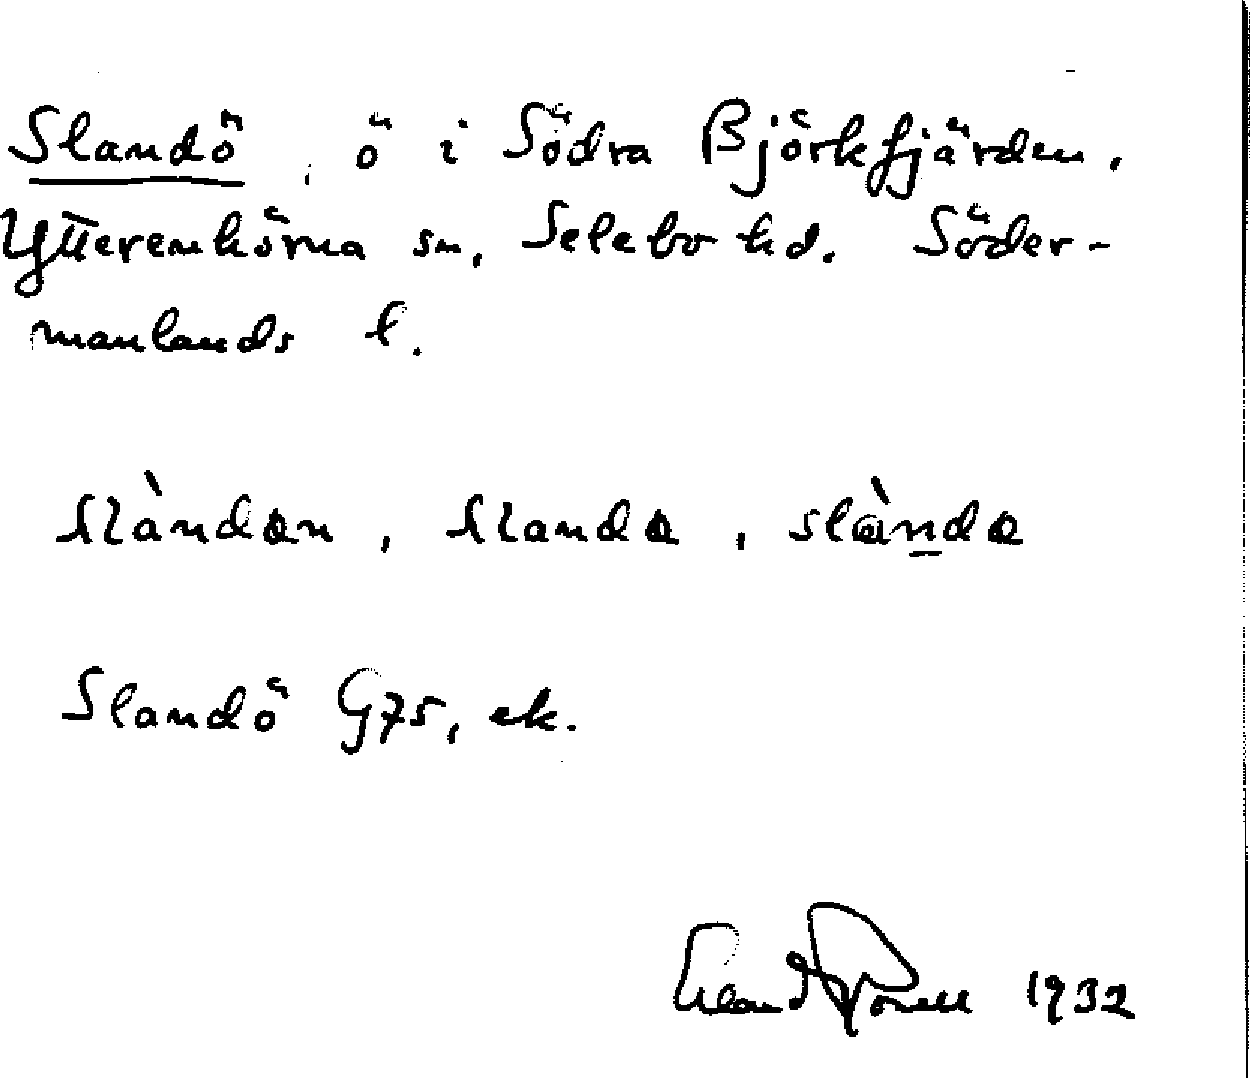 Slandö, ö i Södra Björkfjärden.
Ytterenhörna sn, Selebo hd. Söder-
manlands l.
slàndαn, slandα, slàn̲dα
Slandö G75, ek.
1932